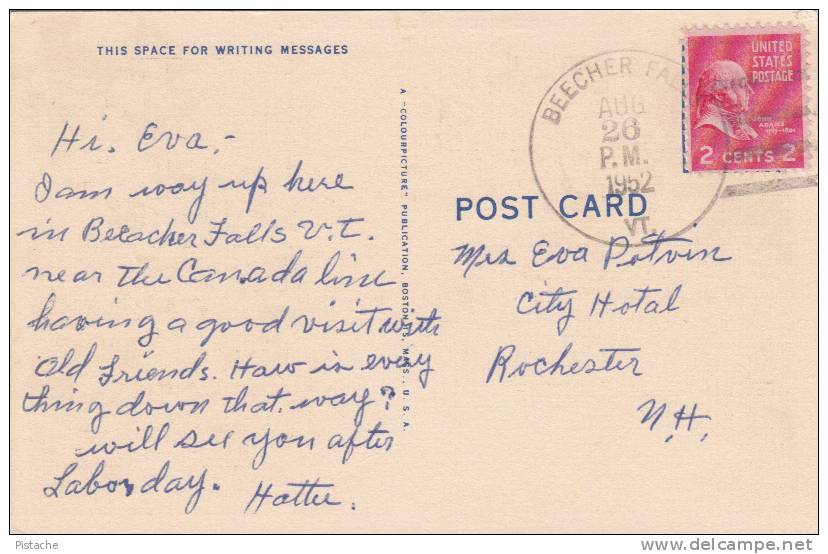 THIS SPACE FOR WRITING MESSAGES
Hi. Eva,-
I am way up here
in Beeacher Falls V.T.
near the Canada line
having a good visit with
Old Friends. Haw is every
thing down that way?
will see you after
Labor day. Hattie.
A "COLOURPICTURE" PUBLICATION, BOSTON 15, MASS., U.S.A.
BEECHER FALLS
AUG
26
P.M.
1952
VT.
UNITED
STATES
POSTAGE
JOHN
ADAMS
2 CENTS 2
POST CARD
Mrs Eva Potvin
City Hotal
Rochester
N.H.
Pistache
delcampe.net